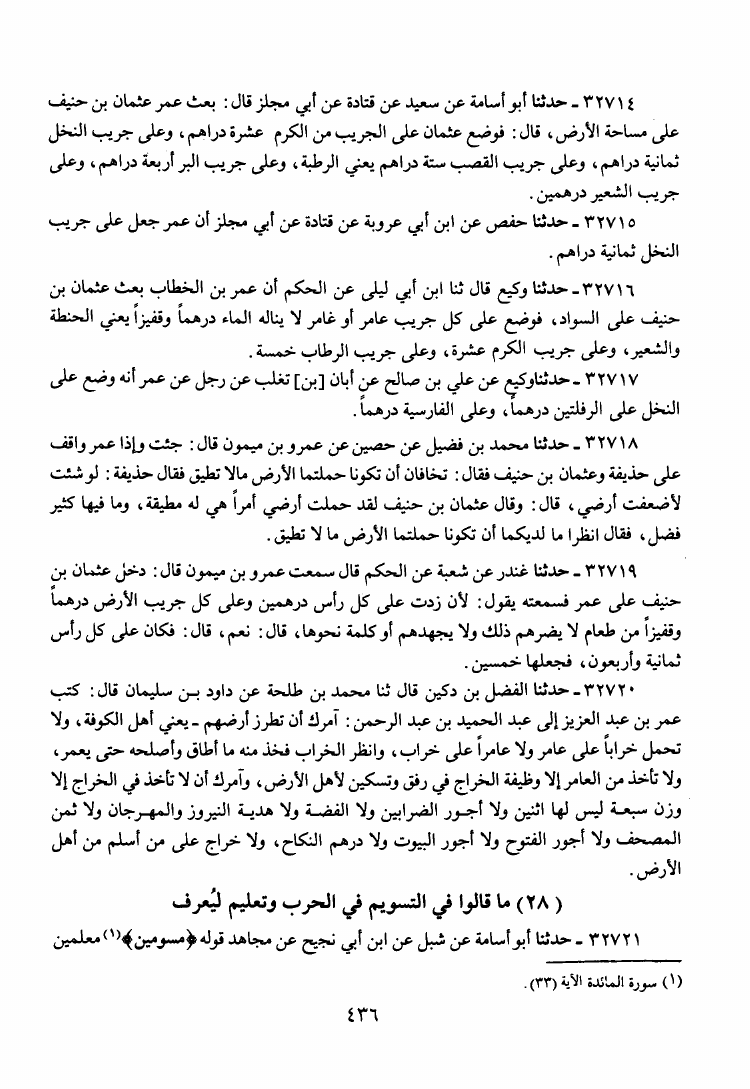 ٣٢٧١٤ ـ حدثنا أبو أسامة عن سعيد عن قتادة عن أبي مجلز قال: بعث عمر عثمان بن حنيف
على مساحة الأرض، قال: فوضع عثمان على الجريب من الكرم عشرة دراهم، وعلى جريب النخل
ثمانية دراهم، وعلى جريب القصب ستة دراهم يعني الرطبة، وعلى جريب البر أربعة دراهم، وعلى
جريب الشعير درهمين.
٣٢٧١٥ ـ حدثنا حفص عن ابن أبي عروبة عن قتادة عن أبي مجلز أن عمر جعل على جريب
النخل ثمانية دراهم.
٣٢٧١٦ ـ حدثنا وكيع قال ثنا ابن أبي ليلى عن الحكم أن عمر بن الخطاب بعث عثمان بن
حنيف على السواد، فوضع على كل جريب عامر أو غامر لا يناله الماء درهماً وقفيزاً يعني الحنطة
والشعير، وعلى جريب الكرم عشرة، وعلى جريب الرطاب خمسة.
٣٢٧١٧ ـ حدثناوكيع عن علي بن صالح عن أبان [بن] تغلب عن رجل عن عمر أنه وضع على
النخل على الرفلتين درهماً، وعلى الفارسية درهماً.
٣٢٧١٨ ـ حدثنا محمد بن فضيل عن حصين عن عمرو بن ميمون قال: جئت وإذا عمر واقف
على حذيفة وعثمان بن حنيف فقال: تخافان أن تكونا حملتما الأرض مالا تطيق فقال حذيفة: لو شئت
لأضعفت أرضي، قال: وقال عثمان بن حنيف لقد حملت أرضي أمراً هي له مطيقة، وما فيها كثير
فضل، فقال انظرا ما لديكما أن تكونا حملتما الأرض ما لا تطيق.
٣٢٧١٩ ـ حدثنا غندر عن شعبة عن الحكم قال سمعت عمرو بن ميمون قال: دخل عثمان بن
حنيف على عمر فسمعته يقول: لأن زدت على كل رأس درهمين وعلى كل جريب الأرض درهماً
وقفيزاً من طعام لا يضرهم ذلك ولا يجهدهم أو كلمة نحوها، قال: نعم، قال: فكان على كل رأس
ثمانية وأربعون، فجعلها خمسين.
٣٢٧٢٠ ـ حدثنا الفضل بن دكين قال ثنا محمد بن طلحة عن داود بـن سليمان قال: كتب
عمر بن عبد العزيز إلى عبد الحميد بن عبد الرحمن: آمرك أن تطرز أرضهم ـ يعني أهل الكوفة، ولا
تحمل خراباً على عامر ولا عامراً على خراب، وانظر الخراب فخذ منه ما أطاق وأصلحه حتى يعمر،
ولا تأخذ من العامر إلا وظيفة الخراج في رفق وتسكين لأهل الأرض، وآمرك أن لا تأخذ في الخراج إلا
وزن سبعـة ليس لها اثنين ولا أجـور الضرابين ولا الفضـة ولا هديـة النيروز والمهـرجان ولا ثمن
المصحف ولا أجور الفتوح ولا أجور البيوت ولا درهم النكاح، ولا خراج على من أسلم من أهل
الأرض.
(٢٨) ما قالوا في التسويم في الحرب وتعليم ليُعرف
٣٢٧٢١ ـ حدثنا أبو أسامة عن شبل عن ابن أبي نجيح عن مجاهد قوله ﴿مسومين﴾(١) معلمين
(١) سورة المائدة الآية (٣٣).
٤٣٦